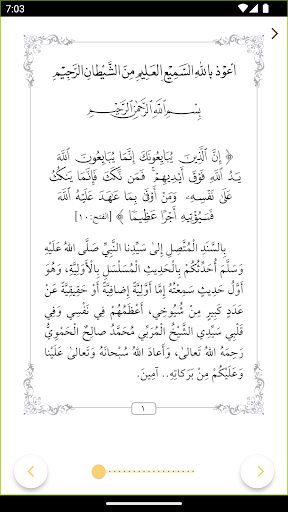 7:03
أعوذ بالله السميع العليم من الشيطان الرجيم
بسم الله الرحمن الرحيم
﴿ إِنَّ ٱلَّذِينَ يُبَايِعُونَكَ إِنَّمَا يُبَايِعُونَ ٱللَّهَ
يَدُ ٱللَّهِ فَوْقَ أَيْدِيهِمْ ۚ فَمَن نَّكَثَ فَإِنَّمَا يَنكُثُ
عَلَىٰ نَفْسِهِۦ ۖ وَمَنْ أَوْفَىٰ بِمَا عَـٰهَدَ عَلَيْهُ ٱللَّهَ
فَسَيُؤْتِيهِ أَجْرًا عَظِيمًا ﴾ [الفتح:١٠]
بِالسَّنَدِ الْمُتَّصِلِ إِلَىٰ سَيِّدِنا النَّبِيِّ صَلَّى اللهُ عَلَيْهِ
وَسَلَّمَ أُحَدِّثُكُمْ بِالْحَدِيثِ الْمُسَلْسَلِ بِالْأَوَّلِيَّةِ، وَهُوَ
أَوَّلُ حَدِيثٍ سَمِعْتُهُ إِمَّا أَوَّلِيَّةً إِضافِيَّةً أَوْ حَقِيقِيَّةً عَنْ
عَدَدٍ كَبِيرٍ مِنْ شُيُوخِي، أَعْظَمُهُمْ فِي نَفْسِي وَفِي
قَلْبِي سَيِّدِي الشَّيْخُ الْمُرَبِّي مُحَمَّدُ صالِحٌ الْحَمَوِيُّ
رَحِمَهُ اللهُ تَعالىٰ، وَأَعادَ اللهُ سُبْحانَهُ وَتَعالىٰ عَلَيْنا
وَعَلَيْكُمْ مِنْ بَرَكاتِهِ.. آمِينَ.
١